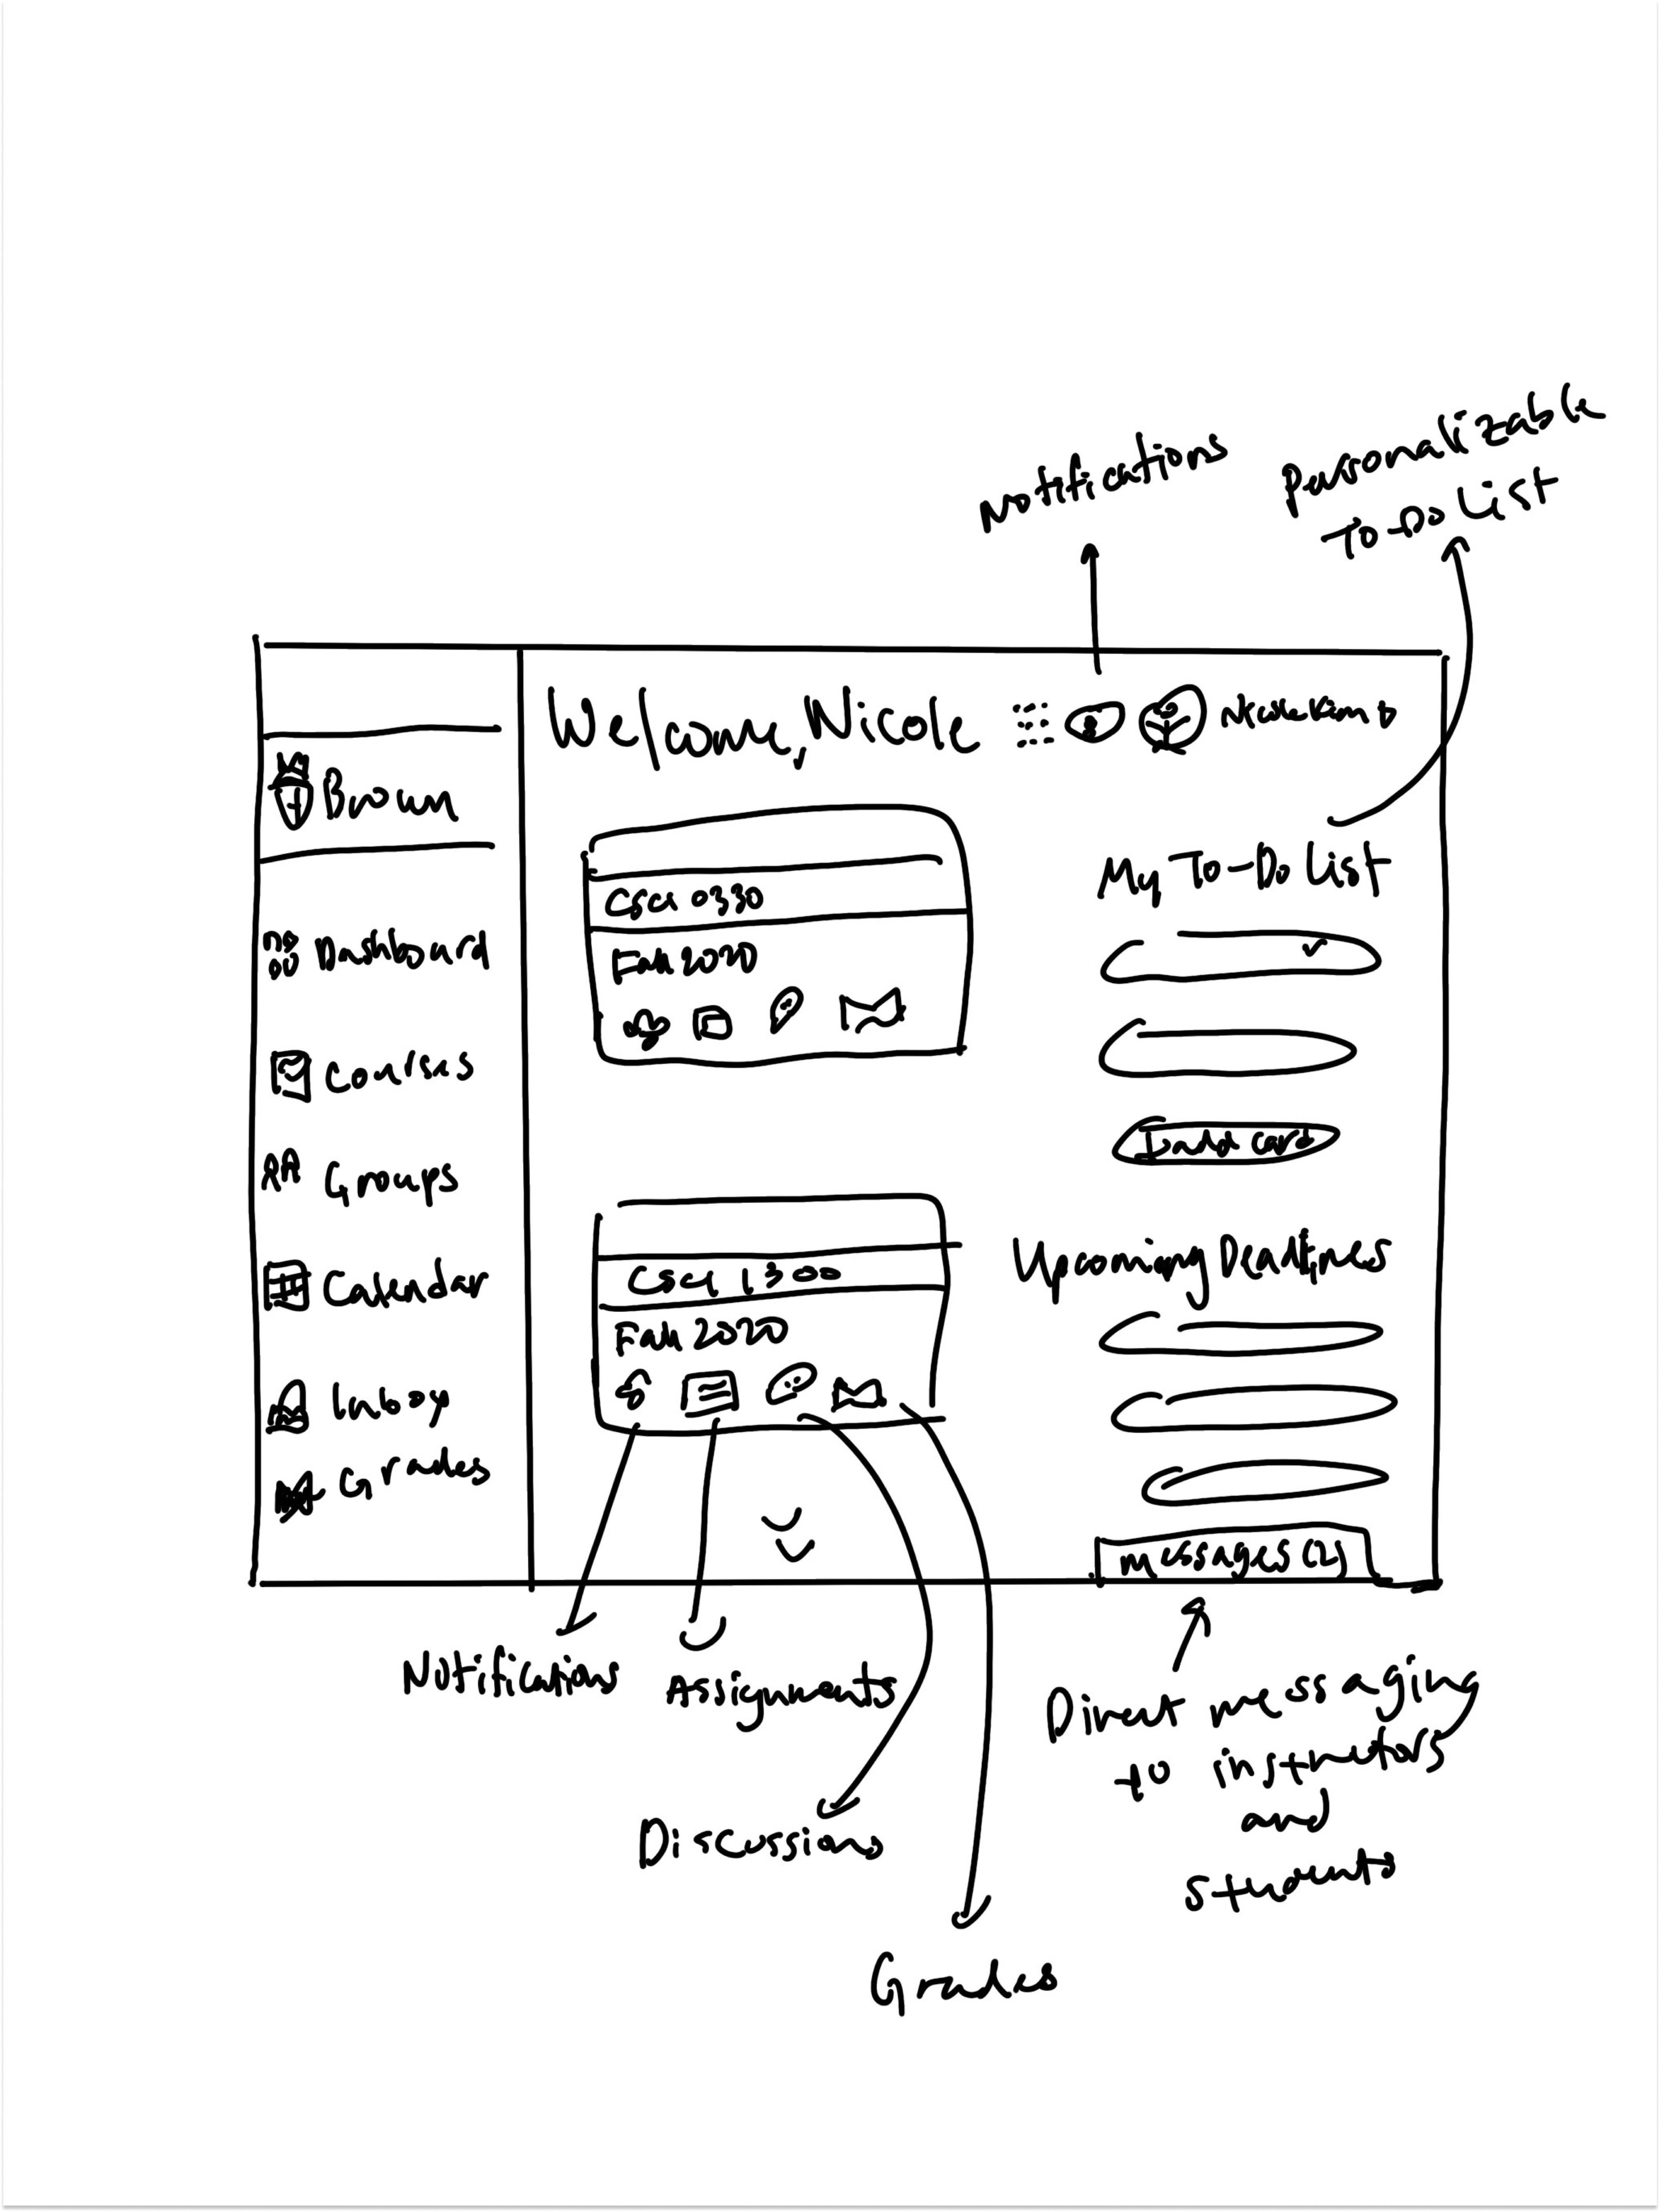 Notifications
Personalizable
To-Do List
Welcome, Nicole
Nicole Kim
Brown
Dashboard
Courses
Groups
Calendar
Inbox
Grades
CSCI 0330
Fall 2020
CSCI 1300
Fall 2020
My To-Do List
card
Upcoming Deadlines
messages (2)
Notifications
Assignments
Discussions
Grades
Direct messaging
to instructors
and
students